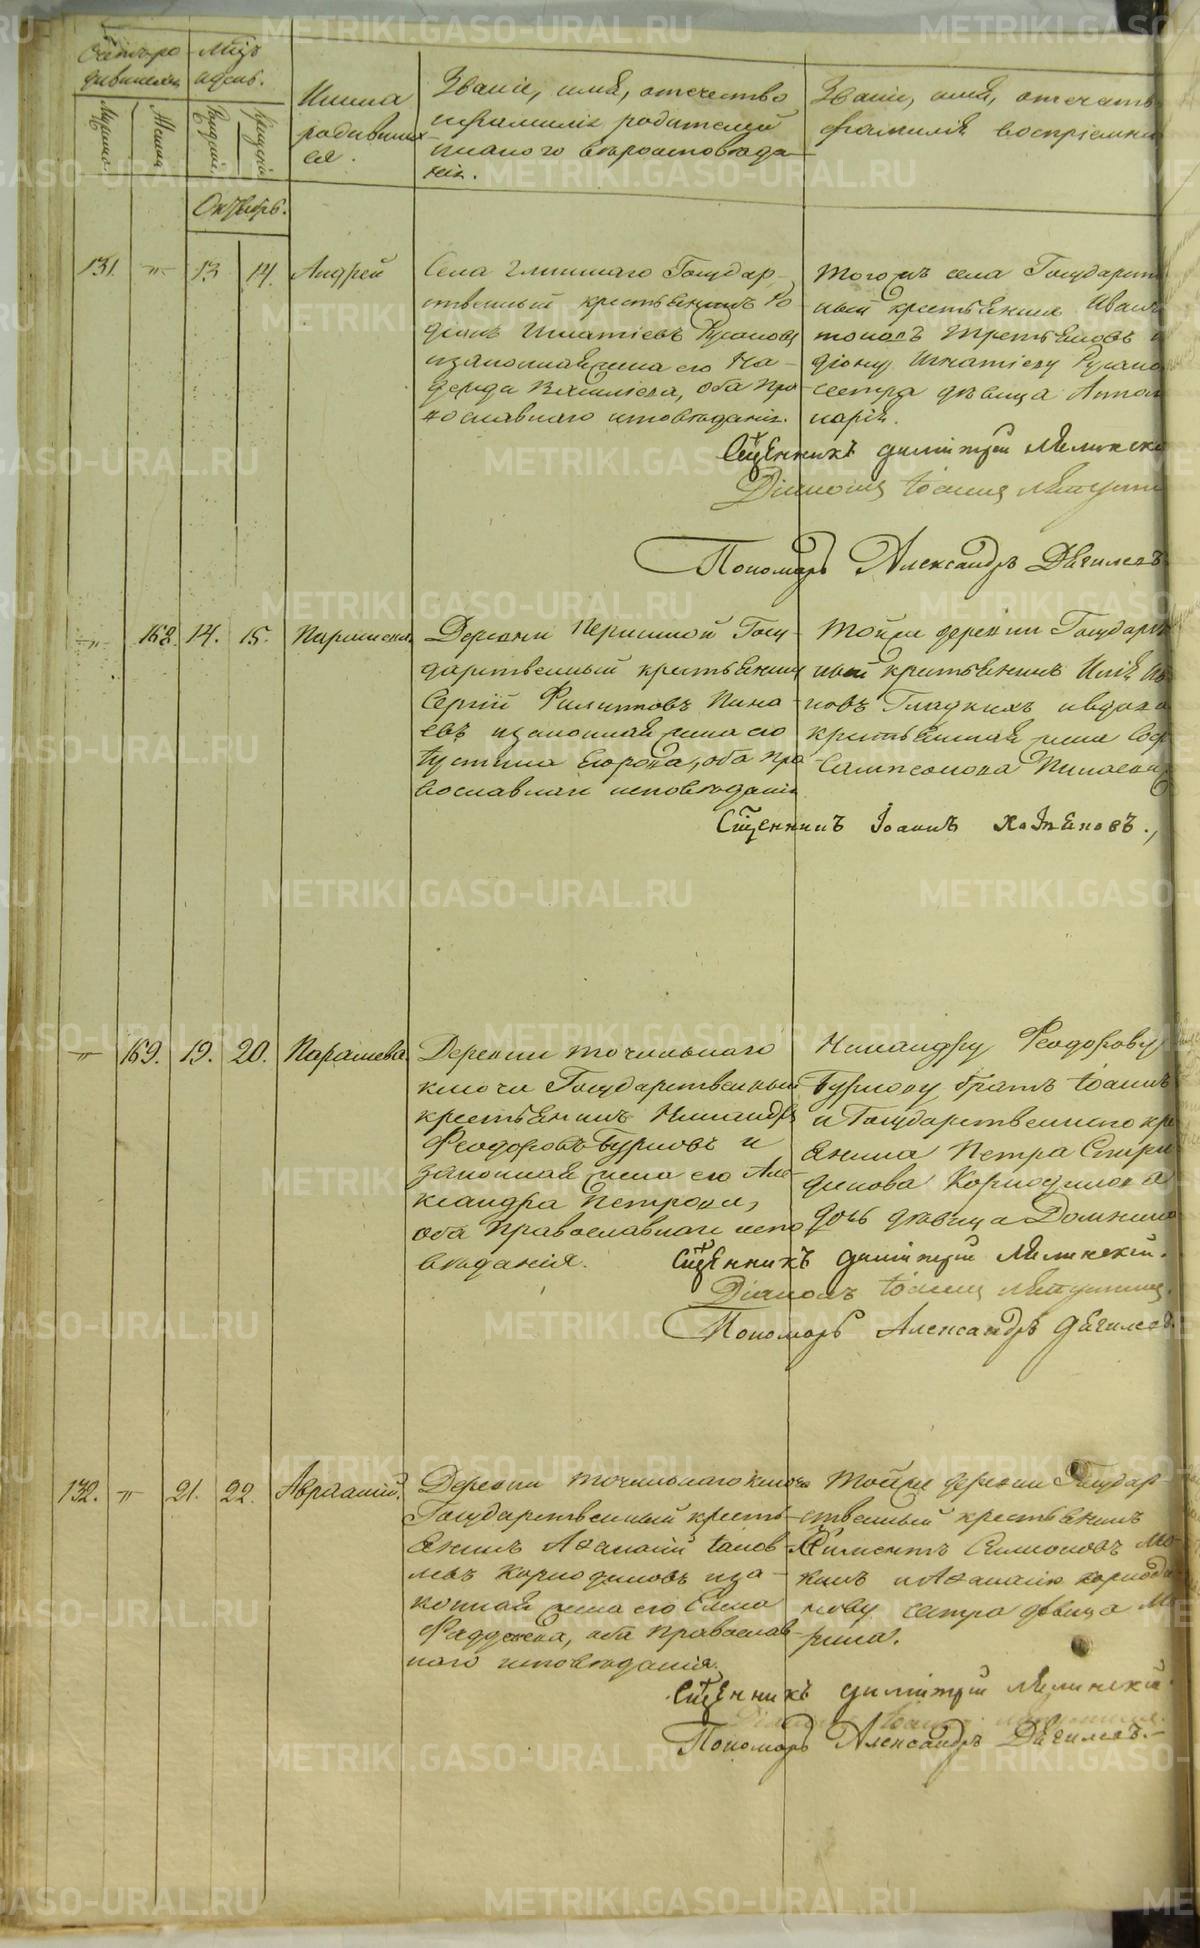 Мѣцъ
и день.
Имена
родивших
ся.
Званіе, имя, отечество
и фамилія родителей
и какого вѣроисповѣда
нія.
Званіе, имя, отечеств
фамилія воспріемни
Октябрь.
131. —"— 13 14. Андрей
Села Глинскаго Государ-
ственный крестьянинъ Ро
діонъ Игнатіевъ Русаковъ
и законная жена его На-
дежда Васильева, оба пра
вославнаго исповѣданія.
Тогожъ села Государствен
ный крестьянинъ Иванъ
Третьяковъ и
діону Игнатіеву Русако
сестра дѣвица Аполи
нарія.
Сщенникъ Димитрій
Діаконъ Іоаннъ
Пономарь Александръ Дягилевъ
—"— 168. 14. 15. Параскева
Деревни Першиной Госу-
дарственный крестьянинъ
Сергій Филиповъ Пина-
евъ и законная жена его
Іустина Егорова, оба пра
вославнаго исповѣданія
Тойже деревни Государствен
ный крестьянинъ Илія Ив
новъ Гладкихъ и вдова
крестьянская жена
Сампсонова Пинаева
Сщенникъ Іоаннъ
—"— 169. 19. 20. Параскева.
Деревни Точильнаго
ключа Государственный
крестьянинъ Никандръ
Феодоровъ Бурковъ и
законная жена его Але
ксандра Петрова,
оба православнаго испо
вѣданія.
Никандру Феодорову
Буркову братъ Іоаннъ
и Государственнаго кре
янина Петра Спири
динова Корнодинова
дочь дѣвица Домника
Сщенникъ Димитрій
Діаконъ Іоаннъ
Пономарь Александръ Дягилевъ.
132. —"— 21. 22. Авраамій.
Деревни Точильнаго ключа
Государственный кресть-
янинъ Аѳанасій Іаков-
левъ Корнодиновъ и за-
конная жена его Елена
Фаддеева, оба православ-
наго исповѣданія.
Тойже деревни Государ-
ственный крестьянинъ
Климентъ Симоновъ Мо-
кинъ и Аѳанасію Корноди
нову сестра дѣвица Ма
рина.
Сщенникъ Димитрій
Пономарь Александръ Дягилевъ.
METRIKI.GASO-URAL.RU